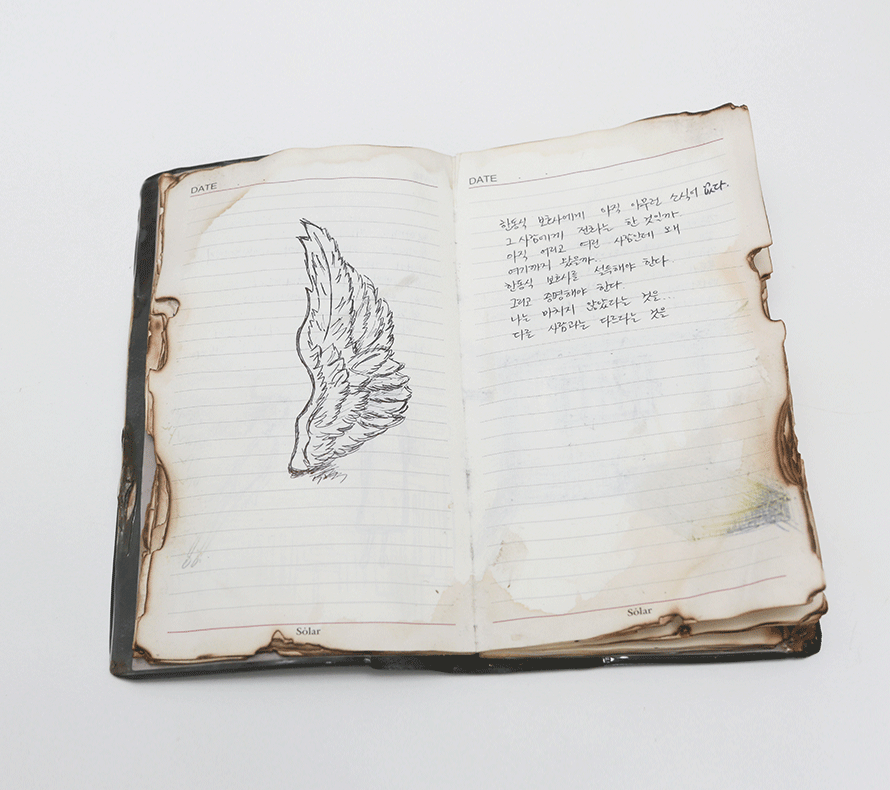 DATE
Sólar
DATE
한동식 보호사에게 아직 아무런 소식이 없다.
그 사람에게 전화는 한 것인가
아직 어리고 여린 사람인데 왜
여기까지 왔을까.
한동식 보호사를 설득해야 한다.
그리고 증명해야 한다
나는 미치지 않았다는 것은..
다른 사람과는 다르다는 것을
Sólar